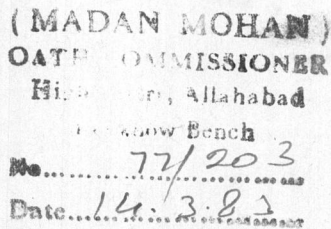 (MADAN MOHAN)
OATH COMMISSIONER
High Court, Allahabad
Lucknow Bench
No.......77/203
Date..14.3.83